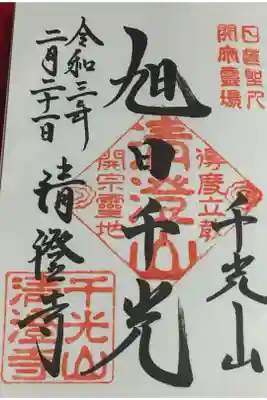 日蓮聖人
開宗霊場
千光山
旭日千光
清澄山
得度立教
開宗霊地
清澄寺
令和三年
二月二十一日
千光山
清澄寺